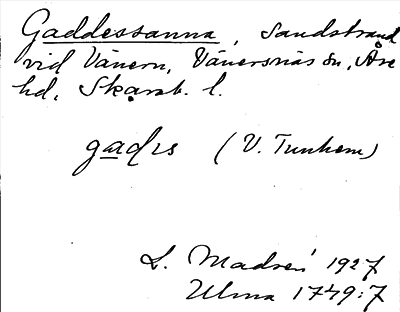 Gaddessanna, Sandstrand
vid Vänern, Vänersnäs sn, Åse
hd, Skarab. l.
gadɩs (V. Tunhem)
L. Madsén 1927
Ulma 1749:7